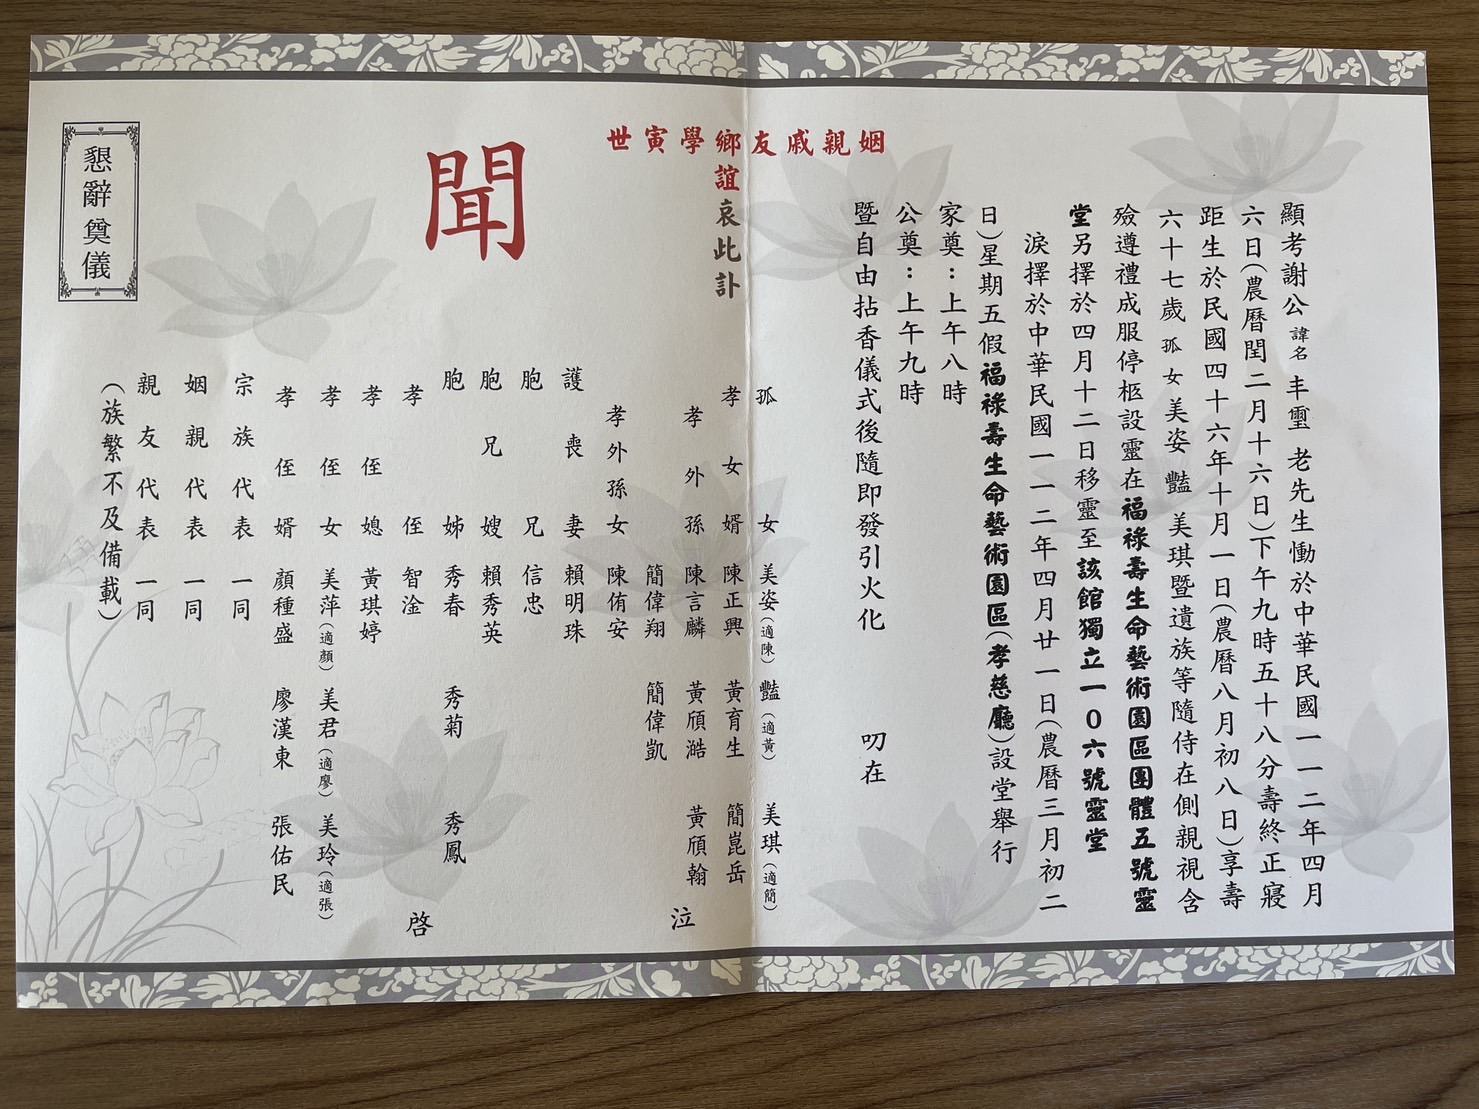 顯考謝公諱名丰璽老先生慟於中華民國一一二年四月
六日(農曆閏二月十六日)下午九時五十八分壽終正寢
距生於民國四十六年十月一日(農曆八月初八日)享壽
六十七歲孤女美姿 豔 美琪暨遺族等隨侍在側親視含
殮遵禮成服停柩設靈在福祿壽生命藝術園區團體五號靈
堂另擇於四月十二日移靈至該館獨立一0六號靈堂
淚擇於中華民國一一二年四月廿一日(農曆三月初二
日)星期五假福祿壽生命藝術園區(孝慈廳)設堂舉行
家奠:上午八時
公奠:上午九時
暨自由拈香儀式後隨即發引火化 叨在
姻親戚友鄉學寅世
誼哀此訃
聞
孤女 美姿(適陳) 豔(適黃) 美琪(適簡)
孝女婿 陳正興 黃育生 簡崑岳
孝外孫 陳言麟 黃頎澔 黃頎翰 泣
簡偉翔 簡偉凱
孝外孫女 陳侑安
護喪妻 賴明珠
胞兄 信忠
胞兄嫂 賴秀英
胞姊 秀春 秀菊 秀鳳
孝侄 智淦 啓
孝侄媳 黃琪婷
孝侄女 美萍(適顏) 美君(適廖) 美玲(適張)
孝侄婿 顏種盛 廖漢東 張佑民
宗族代表一同
姻親代表一同
親友代表一同
(族繁不及備載)
懇辭奠儀